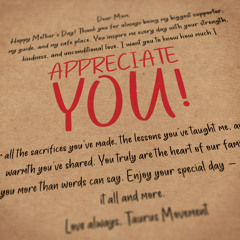 Dear Mom,
Happy Mother's Day! Thank you for always being my biggest supporter,
my guide, and my safe place. You inspire me every day with your strength,
kindness, and unconditional love. I want you to know how much I
APPRECIATE
YOU!
r all the sacrifices you've made, the lessons you've taught me, an
warmth you've shared. You truly are the heart of our fam
you more than words can say. Enjoy your special day –
it all and more.
Love always, Taurus Movement